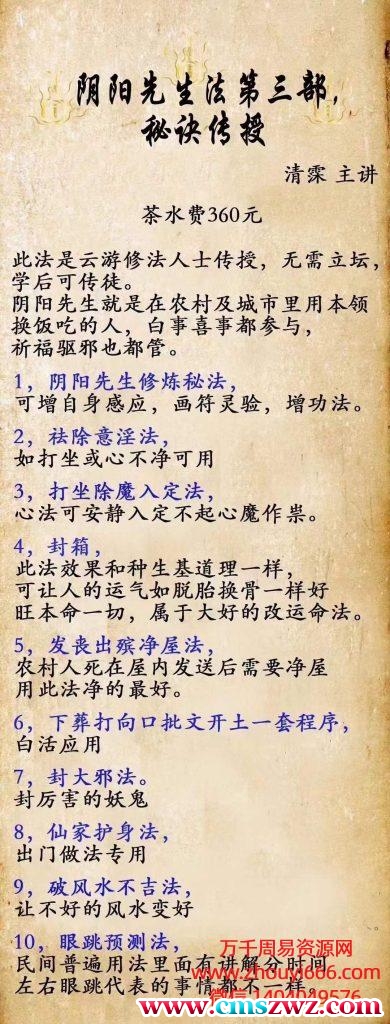 阴阳先生法第三部,
秘诀传授
清霂 主讲
茶水费360元
此法是云游修法人士传授，无需立坛，
学后可传徒。
阴阳先生就是在农村及城市里用本领
换饭吃的人，白事喜事都参与，
祈福驱邪也都管。
1，阴阳先生修炼秘法，
可增自身感应，画符灵验，增功法。
2，祛除意淫法，
如打坐或心不净可用
3，打坐除魔入定法，
心法可安静入定不起心魔作祟。
4，封箱，
此法效果和种生基道理一样，
可让人的运气如脱胎换骨一样好
旺本命一切，属于大好的改运命法。
5，发丧出殡净屋法，
农村人死在屋内发送后需要净屋
用此法净的最好。
6，下葬打向口批文开土一套程序，
白活应用
7，封大邪法。
封厉害的妖鬼
8，仙家护身法，
出门做法专用
9，破风水不吉法，
让不好的风水变好
10，眼跳预测法，
民间普遍用法里面有讲解分时间
左右眼跳代表的事情都不一样。
万千周易资源网
www.zhouyi666.com
www.cmszwz.com